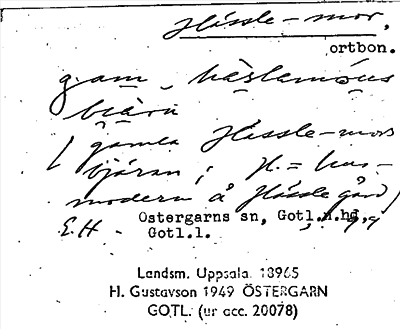 Hässle-mor,
ortbon.
gam häslemōus
biärn
(gamla Hässle-mors
bjäran; H. = hus-
modern å Hässle gård)
E.H. Östergarns sn, Gotl.n.hd
Gotl.l.
Landsm. Uppsala 18965
H. Gustavson 1949 ÖSTERGARN
GOTL. (ur acc. 20078)